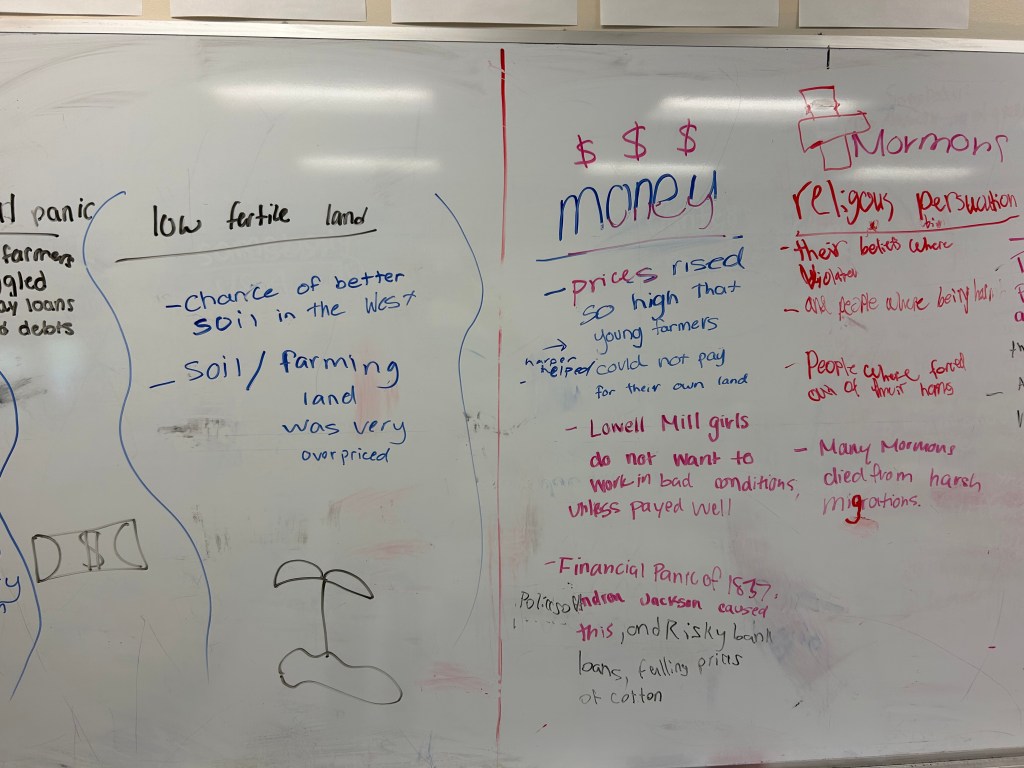 panic
farmers
gled
ay loans
debts
low fertile land
-Chance of better
soil in the West
- Soil / farming
land
was very
overpriced
$
$ $ $
money
- prices rised
so high that
young farmers
→
harper
helper
- could not pay
for their own land
- Lowell Mill girls
do not want to
work in bad conditions,
unless payed well
- Financial Panic of 1837.
Andrew Jackson caused
this, and Risky bank
loans, falling prices
of cotton
Mormons
religous persuation
- their beliefs where
Violated
- and people where being
- People where forced
out of their
- Many Mormons
died from harsh
migrations.